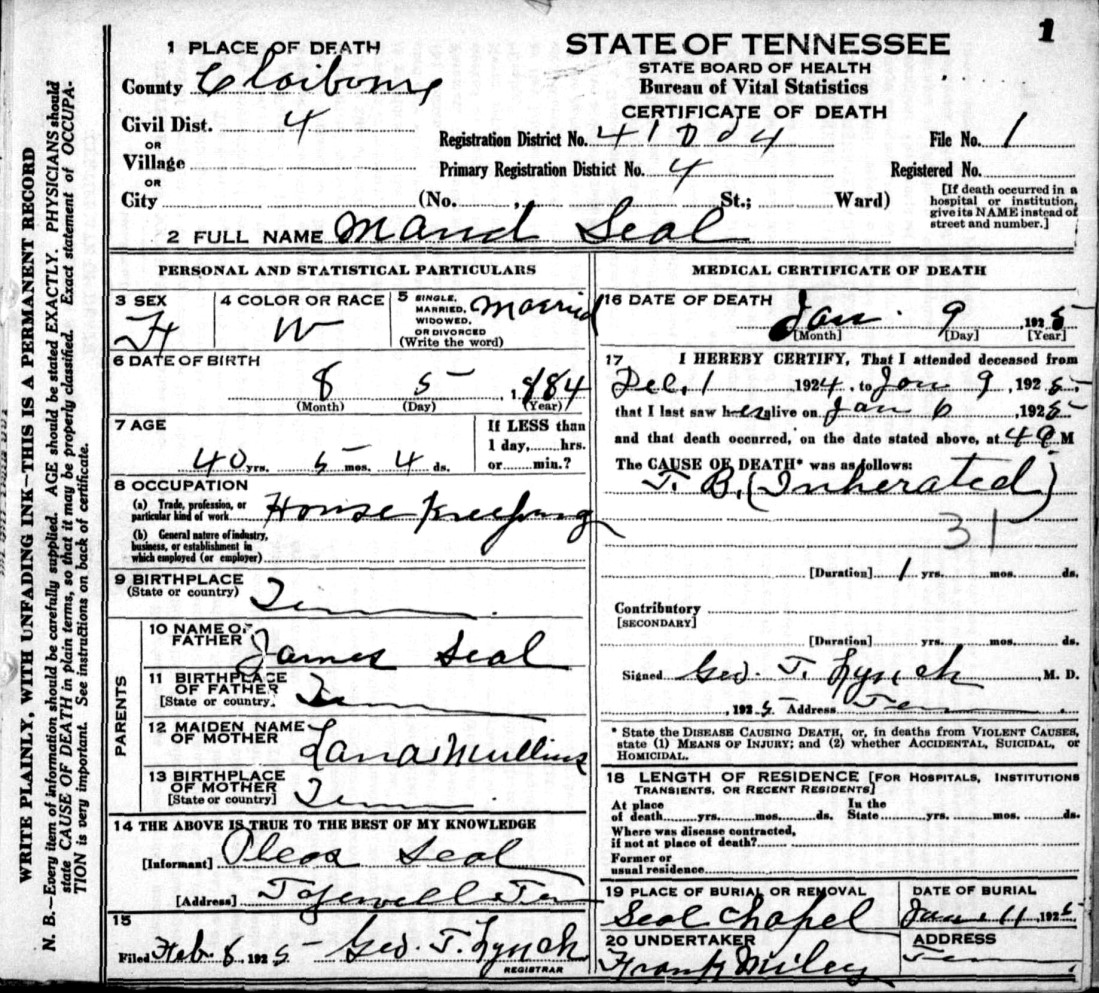 1
STATE OF TENNESSEE
STATE BOARD OF HEALTH
Bureau of Vital Statistics
CERTIFICATE OF DEATH
1 PLACE OF DEATH
County Claiborne
Civil Dist. 4
OR
Village
OR
City (No. , St.; Ward)
Registration District No. File No. 1
Primary Registration District No. 4 Registered No.
[If death occurred in a
hospital or institution,
give its NAME instead of
street and number.]
2 FULL NAME Maud Seal
PERSONAL AND STATISTICAL PARTICULARS
3 SEX
F
4 COLOR OR RACE
W
5 SINGLE,
MARRIED,
WIDOWED,
OR DIVORCED
(Write the word)
Married
6 DATE OF BIRTH
8 5 , 1884
(Month) (Day) (Year)
7 AGE
40 yrs. 5 mos. 4 ds.
If LESS than
1 day, hrs.
or min.?
8 OCCUPATION
(a) Trade, profession, or
particular kind of work House Keeping
(b) General nature of industry,
business, or establishment in
which employed (or employer)
9 BIRTHPLACE
(State or country) Tenn
PARENTS
10 NAME OF
FATHER James Seal
11 BIRTHPLACE
OF FATHER
[State or country. Tenn
12 MAIDEN NAME
OF MOTHER Lana Mullins
13 BIRTHPLACE
OF MOTHER
[State or country] Tenn
14 THE ABOVE IS TRUE TO THE BEST OF MY KNOWLEDGE
[Informant] Pleas Seal
[Address] Tazewell Tenn
15
Filed Feb 8, 1925 Geo. T. Lynch
REGISTRAR
MEDICAL CERTIFICATE OF DEATH
16 DATE OF DEATH
Jan. 9 , 1925
[Month] [Day] [Year]
17 I HEREBY CERTIFY, That I attended deceased from
Dec. 1 1924, to Jan 9, 1925,
that I last saw her alive on Jan 6 , 1925
and that death occurred, on the date stated above, at M
The CAUSE OF DEATH* was as follows:
T. B. (Inherated)
31
[Duration] 1 yrs. mos. ds.
Contributory
[SECONDARY]
[Duration] yrs. mos. ds.
Signed Geo. T. Lynch, M. D.
, 1925 Address Tenn
* State the DISEASE CAUSING DEATH, or, in deaths from VIOLENT CAUSES,
state (1) MEANS OF INJURY; and (2) whether ACCIDENTAL, SUICIDAL, OR
HOMICIDAL.
18 LENGTH OF RESIDENCE [FOR HOSPITALS, INSTITUTIONS
TRANSIENTS, OR RECENT RESIDENTS]
At place
of death yrs. mos. ds.
In the
State yrs. mos. ds.
Where was disease contracted,
if not at place of death?
Former or
usual residence
19 PLACE OF BURIAL OR REMOVAL
Seal Chapel
DATE OF BURIAL
Jan 11, 1925
20 UNDERTAKER
Frank Miley
ADDRESS
Tenn
WRITE PLAINLY, WITH UNFADING INK—THIS IS A PERMANENT RECORD
N. B.—Every item of information should be carefully supplied. AGE should be stated EXACTLY. PHYSICIANS should
state CAUSE OF DEATH in plain terms, so that it may be properly classified. Exact statement of OCCUPA-
TION is very important. See instructions on back of certificate.